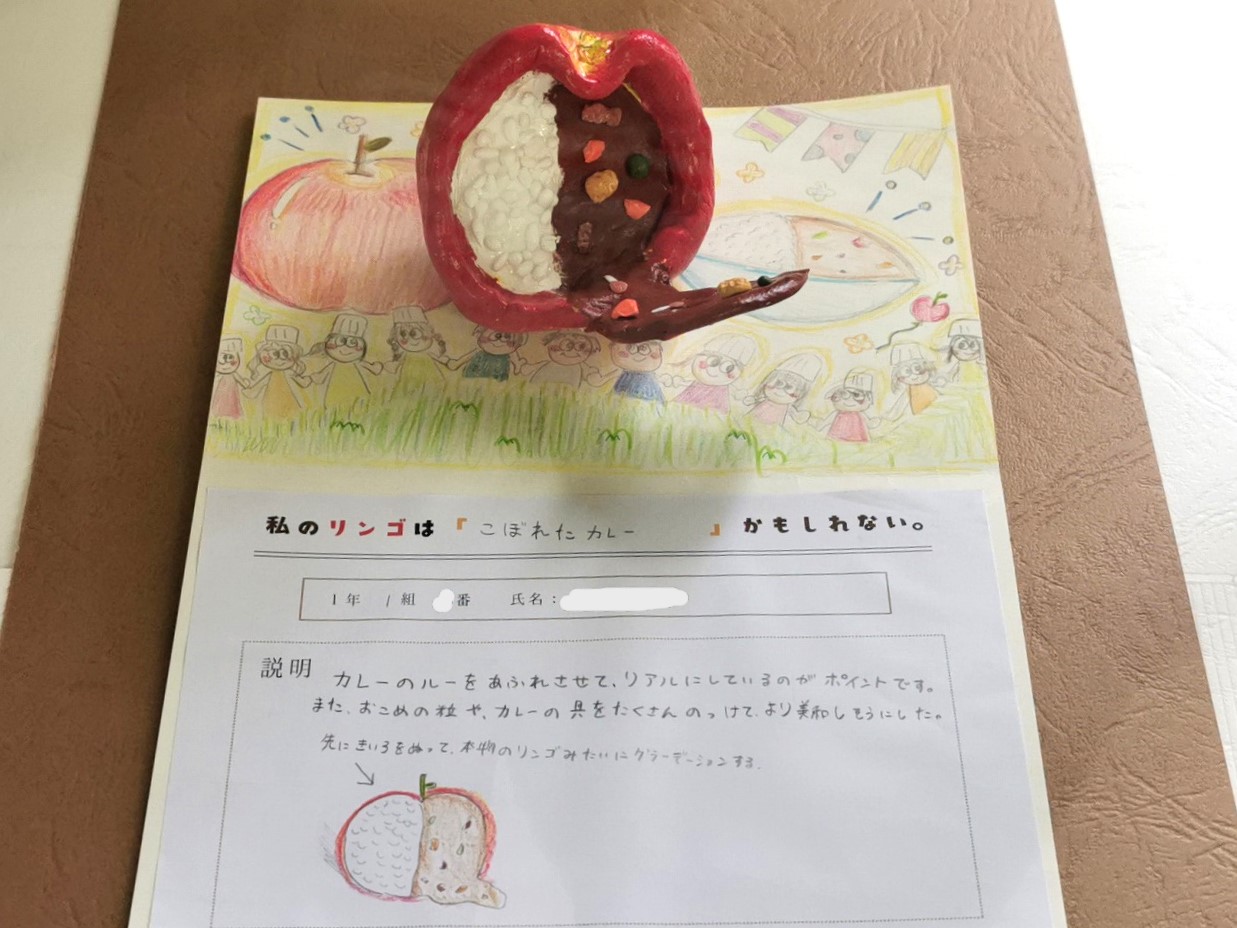 私のリンゴは『こぼれたカレー』かもしれない。
1年 1組 番 氏名：
説明
カレーのルーをあふれさせて、リアルにしているのがポイントです。
また、おこめの粒や、カレーの具をたくさんのっけて、より美味しそうにした。
先にきいろをぬって、本物のリンゴみたいにグラーデーションする。